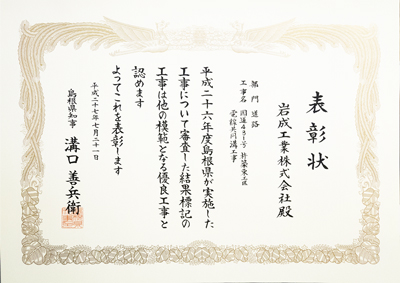 表彰状
岩成工業株式会社殿
部門 道路
工事名 国道431号 杵築東工区
電線共同溝工事
平成二十六年度島根県が実施した
工事について審査した結果標記の
工事は他の模範となる優良工事と
認めます
よってこれを表彰します
平成二十七年七月二十一日
島根県知事 溝口善兵衛